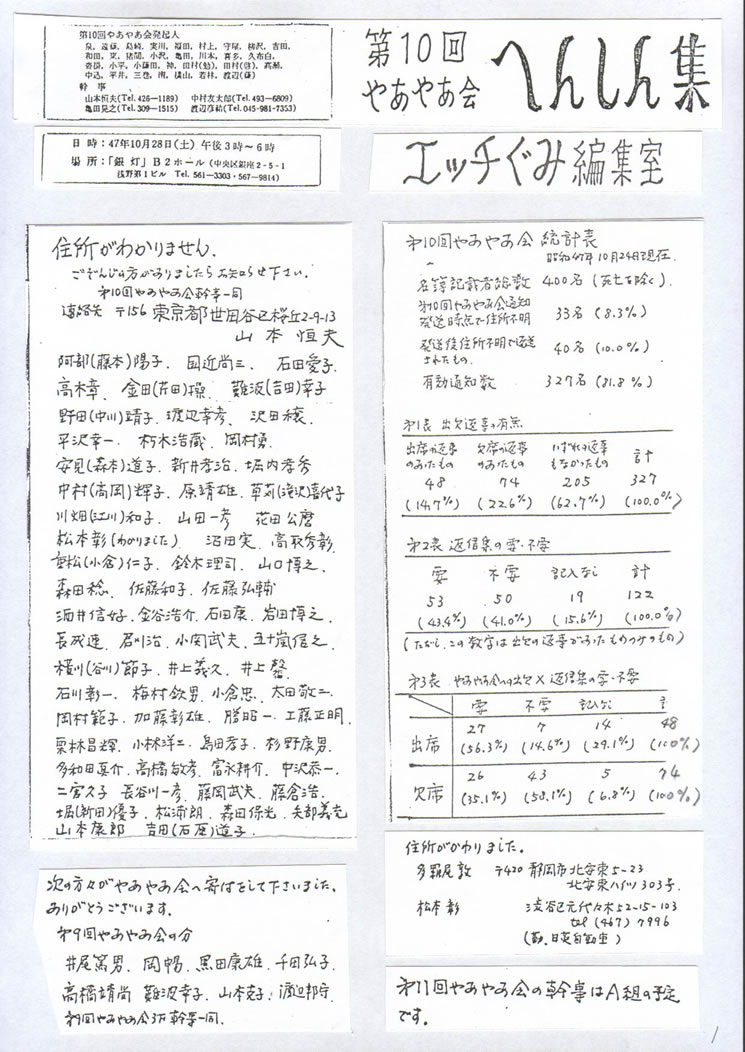 第10回やあやあ会発起人
泉、遠藤、島崎、実川、福田、村上、守屋、柳沢、吉田、
和田、文、猪間、小沢、亀田、川本、喜多、久布白、
斎掛、小平、小鎌田、神、田村(勉)、田村(啓)、高瀬、
中込、平井、三巻、南、横山、若林、渡辺(藤)
幹事
山本恒夫(Tel.426—1189) 中村友太郎(Tel.493—6809)
亀田晃之(Tel.309—1515) 渡辺彦祐(Tel.045-981-7353)
第10回
やあやあ会 へんしん集
日時:47年10月28日(土)午後3時~6時
場所:「銀灯」B2ホール(中央区銀座2-5-1
浅野第1ビル Tel. 561—3303・567—9814)
エッチぐみ編集室
住所がわかりません.
ごぞんじの方がありましたらお知らせ下さい.
第10回やあやあ会幹事一同
連絡先 〒156 東京都世田谷区桜丘2-9-13
山本恒夫
阿部(藤本)陽子. 国近尚三. 石田愛子.
高木章. 金田(吉田)操. 難波(吉田)幸子
野田(中川)靖子. 渡辺幸彦. 沢田穣.
平沢幸一. 朽木浩蔵. 岡村勇.
安見(森本)道子. 新井孝治. 堀内孝秀
中村(高岡)輝子. 原靖雄. (滝沢)喜代子
川畑(江川)和子. 山田一彦 花田公麿
松本彰(わかりました) 沼田実. 高取秀彰.
重松(小倉)仁子. 鈴木理司. 山口博之.
森田稔. 佐藤和子. 佐藤弘輔
酒井信好. 金谷浩介. 石田康. 岩田博之.
長成連. 君川治. 小関武夫. 五十嵐信之.
横川(谷川)節子. 井上義久. 井上馨
石川彰一. 梅村欽男. 小倉忠. 太田敬二.
岡村範子. 加藤彰雄. 勝昭一. 工藤正明.
栗林昌輝. 小林洋二. 島田孝子. 杉野康男.
多和田真介. 高橋敏彦. 富永耕介. 中沢恭一.
二宮久子. 長谷川一彦. 藤岡武夫. 藤倉浩.
堀(新田)優子. 松浦朗. 森田保光. 矢部義克
山本康郎. 吉田(石原)道子.
次の方々がやあやあ会へ寄付をして下さいました.
ありがとうございます.
第9回やあやあ会の分
井尾篤男. 岡暢. 黒田康雄. 千田弘子.
高橋靖尚 難波幸子. 山本克子. 渡辺邦守.
第9回やあやあ会3万幹事一同.
第10回やあやあ会 統計表
昭和47年10月24日現在.
名簿記載者総数 400名 (死亡を除く).
第10回やあやあ会通知
発送時点で住所不明 33名 (8.3%)
発送後住所不明で返送
されたもの. 40名 (10.0%)
有効通知数 327名 (81.8%)
第1表 出欠返事の有無
出席の返事のあったもの 欠席の返事のあったもの いずれの返事もなかったもの 計
48 74 205 327
(14.7%) (22.6%) (62.7%) (100.0%)
第2表 返信集の要・不要
要 不要 記入なし 計
53 50 19 122
(43.4%) (41.0%) (15.6%) (100.0%)
(ただし、この数字は出欠の返事があったものつけのもの)
第3表 やあやあ会への出欠×返信集の要・不要
要 不要 記入なし 計
出席 27 7 14 48
(56.3%) (14.6%) (29.1%) (100%)
欠席 26 43 5 74
(35.1%) (58.1%) (6.8%) (100%)
住所がかわりました.
多羅尾敦 〒420 静岡市北安東5-23
北安東ハイツ303号.
松本彰 渋谷区元代々木52-15-103
tel (467) 7996
(勤. 日産自動車)
第11回やあやあ会の幹事はA組の予定
です.
1